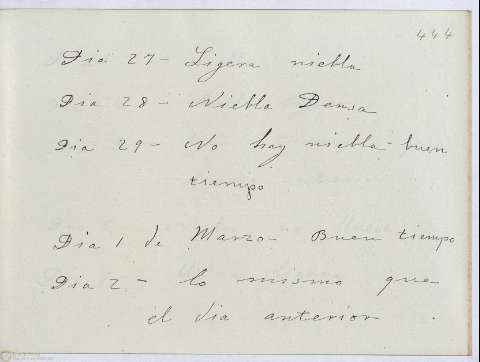 444
Dia 27 - Ligera niebla
Dia 28 - Niebla Densa
Dia 29 - No hay niebla - buen
tiempo
Dia 1 de Marzo - Buen tiempo
Dia 2 - lo mismo que
el dia anterior.